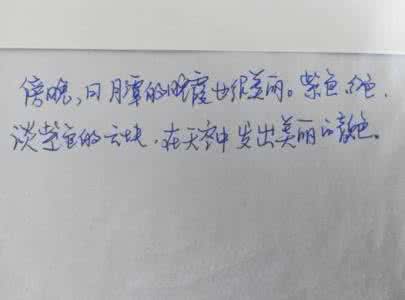 傍晚,日月潭的晚霞也很美丽。紫色、红色、
淡紫色的云块,在天空中发出美丽的颜色。